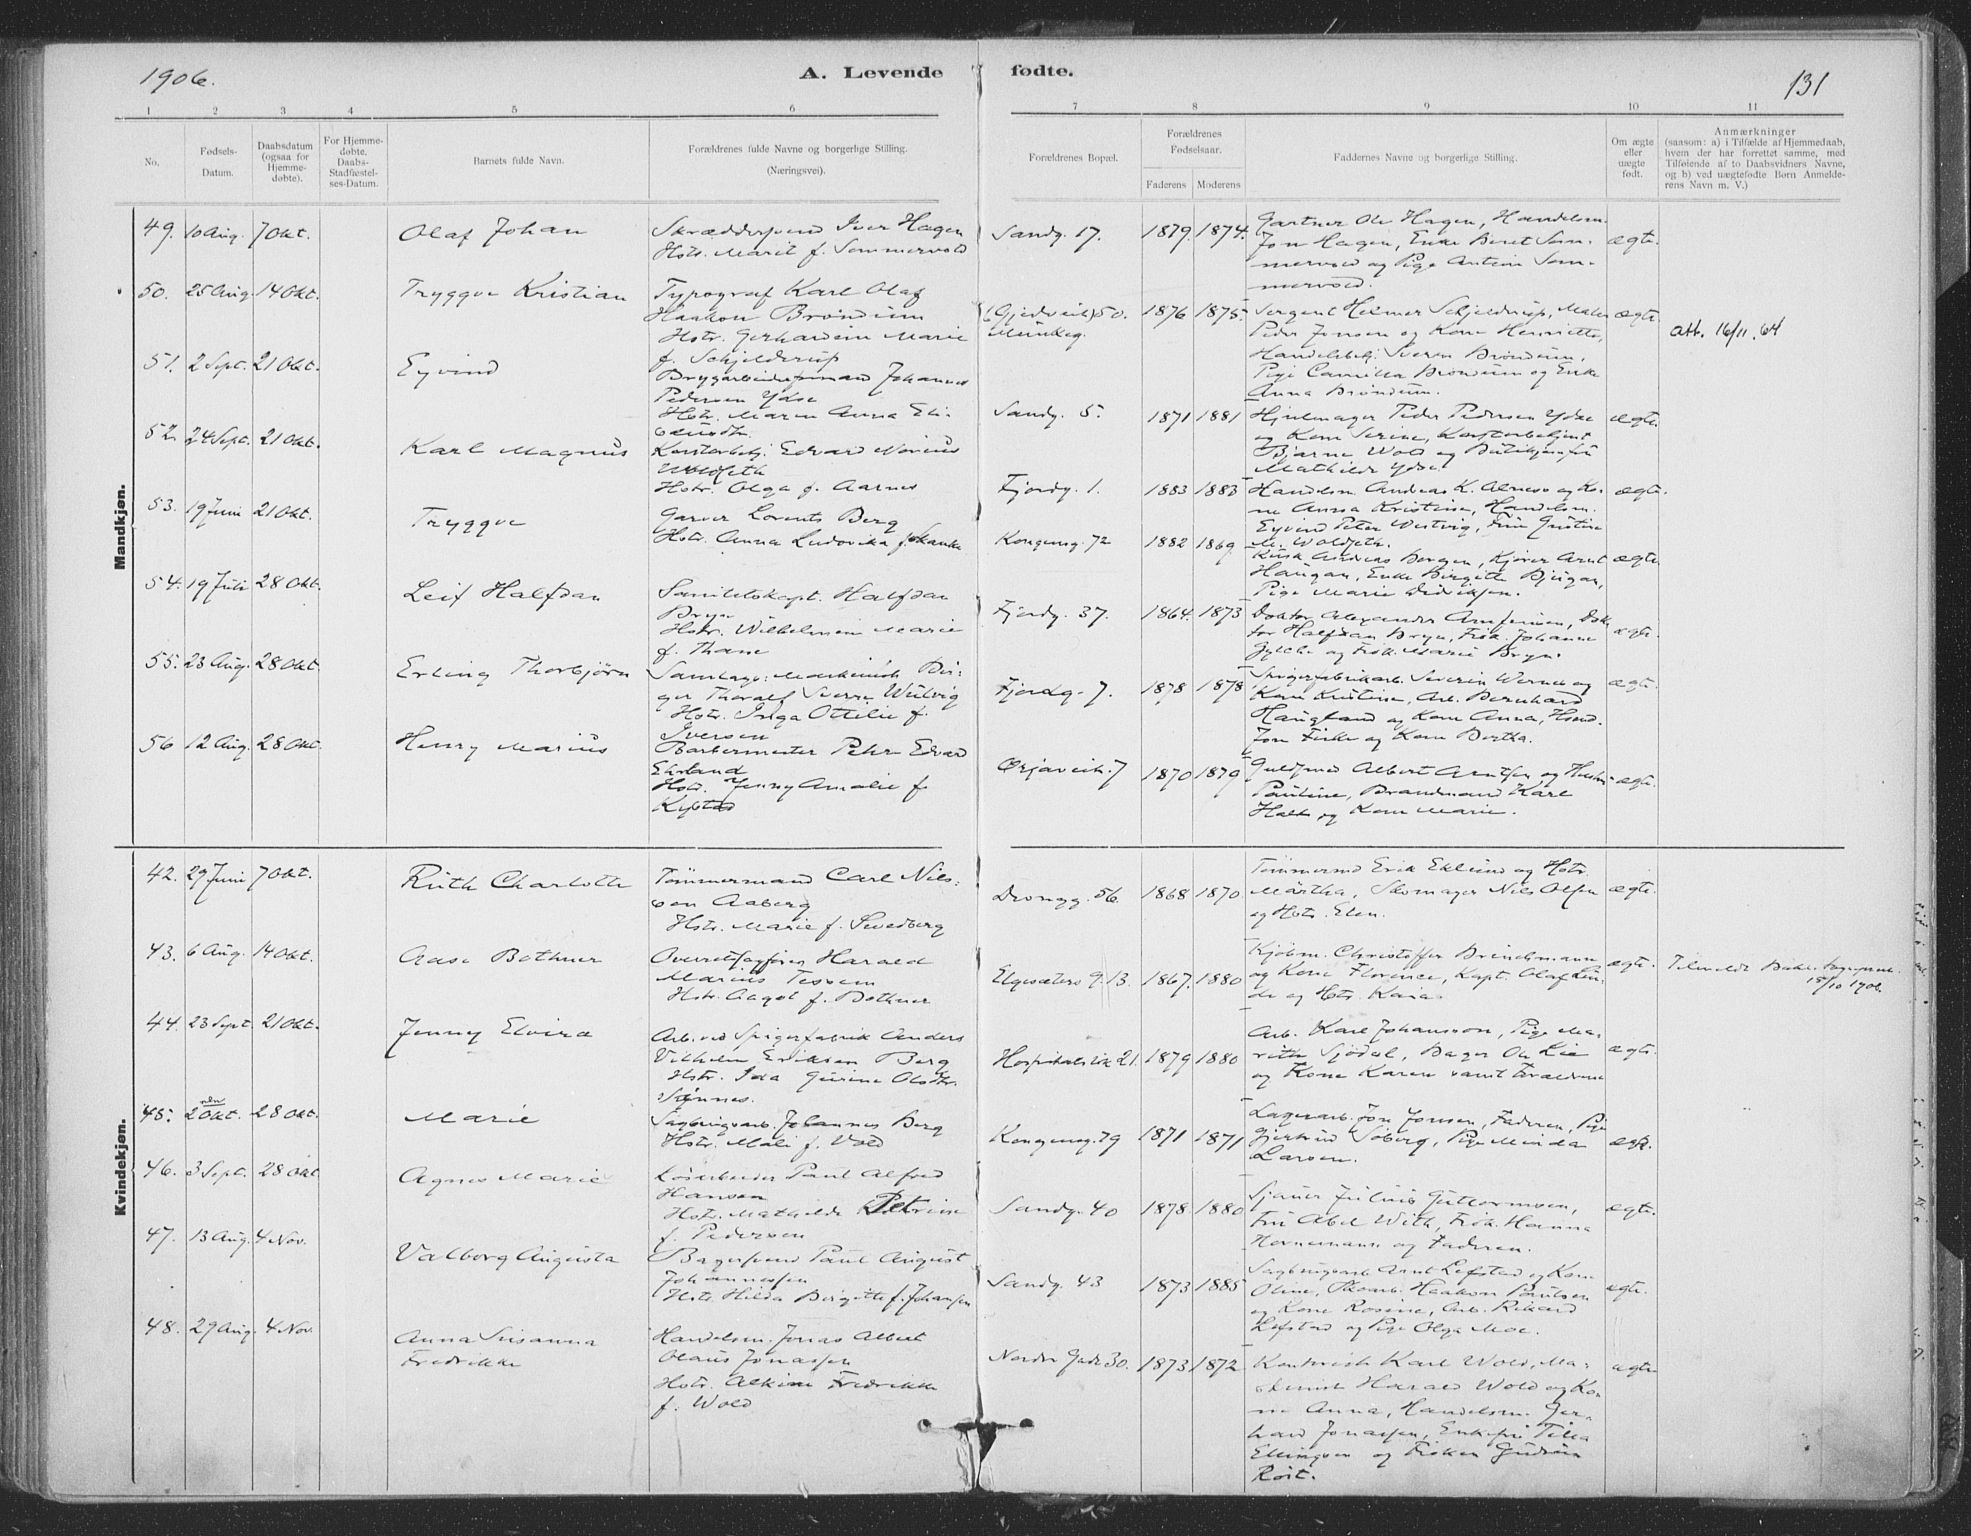 1906.
A. Levende fødte.
131
1 2 3 4 5 6 7 8 9 10 11
No.
Fødsels-
Datum.
Daabsdatum
(ogsaa for
Hjemme-
døbte).
For Hjemme-
døbte.
Daabs-
Stadfæstel-
ses-Datum.
Barnets fulde Navn.
Forældrenes fulde Navne og borgerlige Stilling.
(Næringsvei).
Forældrenes Bopæl.
Forældrenes
Fødselsaar.
Faderens Moderens
Faddernes Navne og borgerlige Stilling.
Om ægte
eller
uægte
født.
Anmærkninger
(saasom: a) i Tilfælde af Hjemmedaab,
hvem der har forrettet samme, med
Tilføiende af to Daabsvidners Navne,
og b) ved uægtefødte Børn Anmelde-
rens Navn m. V.)
Mandkjøn.
49. 10 Aug. 7 Okt.
Olaf Johan
Skræddersvend Iver Hagen
Hstr. Marit f. Sommervold
Sandg. 17. 1879. 1874.
Gartner Ole Hagen, Handelsm.
Jon Hagen, Enke Beret Som-
mervold og Pige Antine Som-
mervold.
ægte.
50. 25 Aug. 14 Okt.
Tryggve Kristian
Typograf Karl Olaf
Haakon Bröndum
Hstr. Gerhardine Marie
f. Schjelderup
(Gjedveit) 50.
Munkeg.
1876 1875.
Sergent Helmer Schjelderup, Maler
Peder Jonsen og Kone Henriette,
Handelsbetj. Sverre Bröndum,
Pige Camilla Bröndum og Enke
Anna Bröndum.
ægte.
att. 16/11. 64
51. 2 Sept. 21 Okt.
Eyvind
Bryggarbeidsformand Johannes
Pedersen Ydse
Hstr. Maren Anna Eli-
Sandg. 5. 1871 1881
Hjulmager Peder Pedersen Ydse
og Kone Serine, Kontorbetjent
Bjarne Wold og Butikjomfru
Mathilde Ydse.
ægte
52. 24 Sept. 21 Okt.
Karl Magnus
Kontorbetj. Edvard Norius
Woldseth
Hstr. Olga f. Aarnes
Fjordg. 1. 1883 1883
Handelsm. Andreas K. Alnæs og Ko-
ne Anna Kristine, Handelsm.
Eyvind Peter Westvig, Frue Gustine
M. Woldseth.
ægte.
53. 19 Juni 21 Okt.
Tryggve
Garver Lorents Berg
Hstr. Anna Ludovika f. Skanke
Kongensg. 72 1882 1869
Kusk Andreas Bergen, Kjører Arnt
Haugan, Enke Birgitte Bjugan,
Pige Marie Didriksen.
ægte
54. 19 Juli 28 Okt.
Leif Halfdan
Sanitetskapt. Halfdan
Bryn
Hstr. Wilhelmine Marie
f. Thane
Fjordg. 37. 1864. 1873
Doktor Alexander Arnfinsen, Dok-
tor Halfdan Bryn, Frøk. Johanne
og Frøk. Marie Bryn.
ægte.
55. 23 Aug. 28 Okt.
Erling Thorbjörn
Samlags: Maskinist Bir-
ger Thoralf Sverre Wulvig
Hstr. Inga Ottilie f.
Iversen
Fjordg. 7. 1878. 1878
Spigerfabrikarb. Severin Werner og
Kone Kristine, Arb. Bernhard
Haugland og Kone Anna, Hand.
Jon Fiske og Kone Bertha.
ægte.
56 12 Aug. 28 Okt.
Henry Marius
Barbermester Peter Edvard
Ekrland
Hstr. Jenny Amalie f.
Kystad
Ørjaveit. 7 1870 1879
Guldsmed Albert Arntsen og Hustru
Pauline, Brandmand Karl
Holt og Kone Marie.
ægte.
Kvindekjøn.
42. 29 Juni 7 Okt.
Ruth Charlotte
Tömmermand Carl Nils-
son Aaberg
Hstr. Marie f. Svedberg
Dronngg. 56. 1868 1870
Tömmermd Erik Eklund og Hstr.
Märtha, Skomager Nils Olsen
og Hstr. Elen.
ægte.
43. 6 Aug. 14 Okt.
Aase Bothner
Overretssagfører Harald
Marius Tessem
Hstr. Aagot f. Bothner
Elgesæters g. 13. 1867. 1880
Kjöbm. Christoffer Brinchmann
og Kone Florence, Kapt. Olaf Lin-
de og Hstr. Kaia.
ægte.
Tilmeldt Bakke Sognepræst.
15/10 1906.
44. 23 Sept 21 Okt.
Jenny Elvira
Arb. ved Spigerfabrik Anders
Vilhelm Eriksen Berg
Hstr. Ida Gurine Olsdtr.
Sønnes.
Hospitalslök. 21. 1879 1880
Arb. Karl Johansson, Pige Ma-
rith Sjödal, Bager Ole Lie
og Kone Karen samt Forældrene
ægte.
45. 2 Okt. 28 Okt.
Marie
Sagbrugsarb. Johannes Berg
Hstr. Mali f. Vold
Kongensg. 79 1871 1871
Lagerarb. Jon Jonsen, Faderen, Pige
Gjertrud Söberg, Pige Minda
Larsen.
ægte.
46. 3 Sept. 28 Okt
Agnes Marie
Løsarbeider Paul Alfred
Hansen
Hstr. Mathilde Petrine
f. Pedersen
Sandg. 40 1878. 1880
Sjauer Julius Guttormsen,
Fru Abel With, Frøk. Hanna
Hornemann og Faderen.
ægte.
47. 13 Aug. 4 Nov.
Valborg Augusta
Bagersvend Paul August
Johannessen
Hstr. Hilda Birgitte f. Johansen
Sandg. 43 1873 1885
Sagbrugsarb. Arnt Lefstad og Kone
Oline, Skoarb. Haakon Paulsen
og Kone Rosine, Arb. Rikard
Lefstad og Pige Olga Moe.
ægte.
48. 29 Aug. 4 Nov.
Anna Susanna
Fredrikke
Handelsm. Jonas Albert
Olaus Jonassen
Hstr. Alkine Fredrikke
f. Wold
Nordre Gade 30. 1873 1872
Kontorist Karl Wold, Ma-
skinist Harald Wold og Ko-
ne Anna, Handelsm. Ger-
hard Jonassen, Enkefru Tilla
Ellingsen og Frøken Gudrun
Röst.
ægte